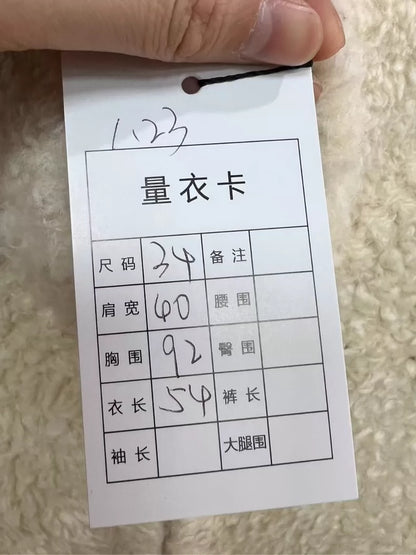 1.23
量衣卡
尺码 34 备注
肩宽 40 腰围
胸围 92 臀围
衣长 54 裤长
袖长 大腿围